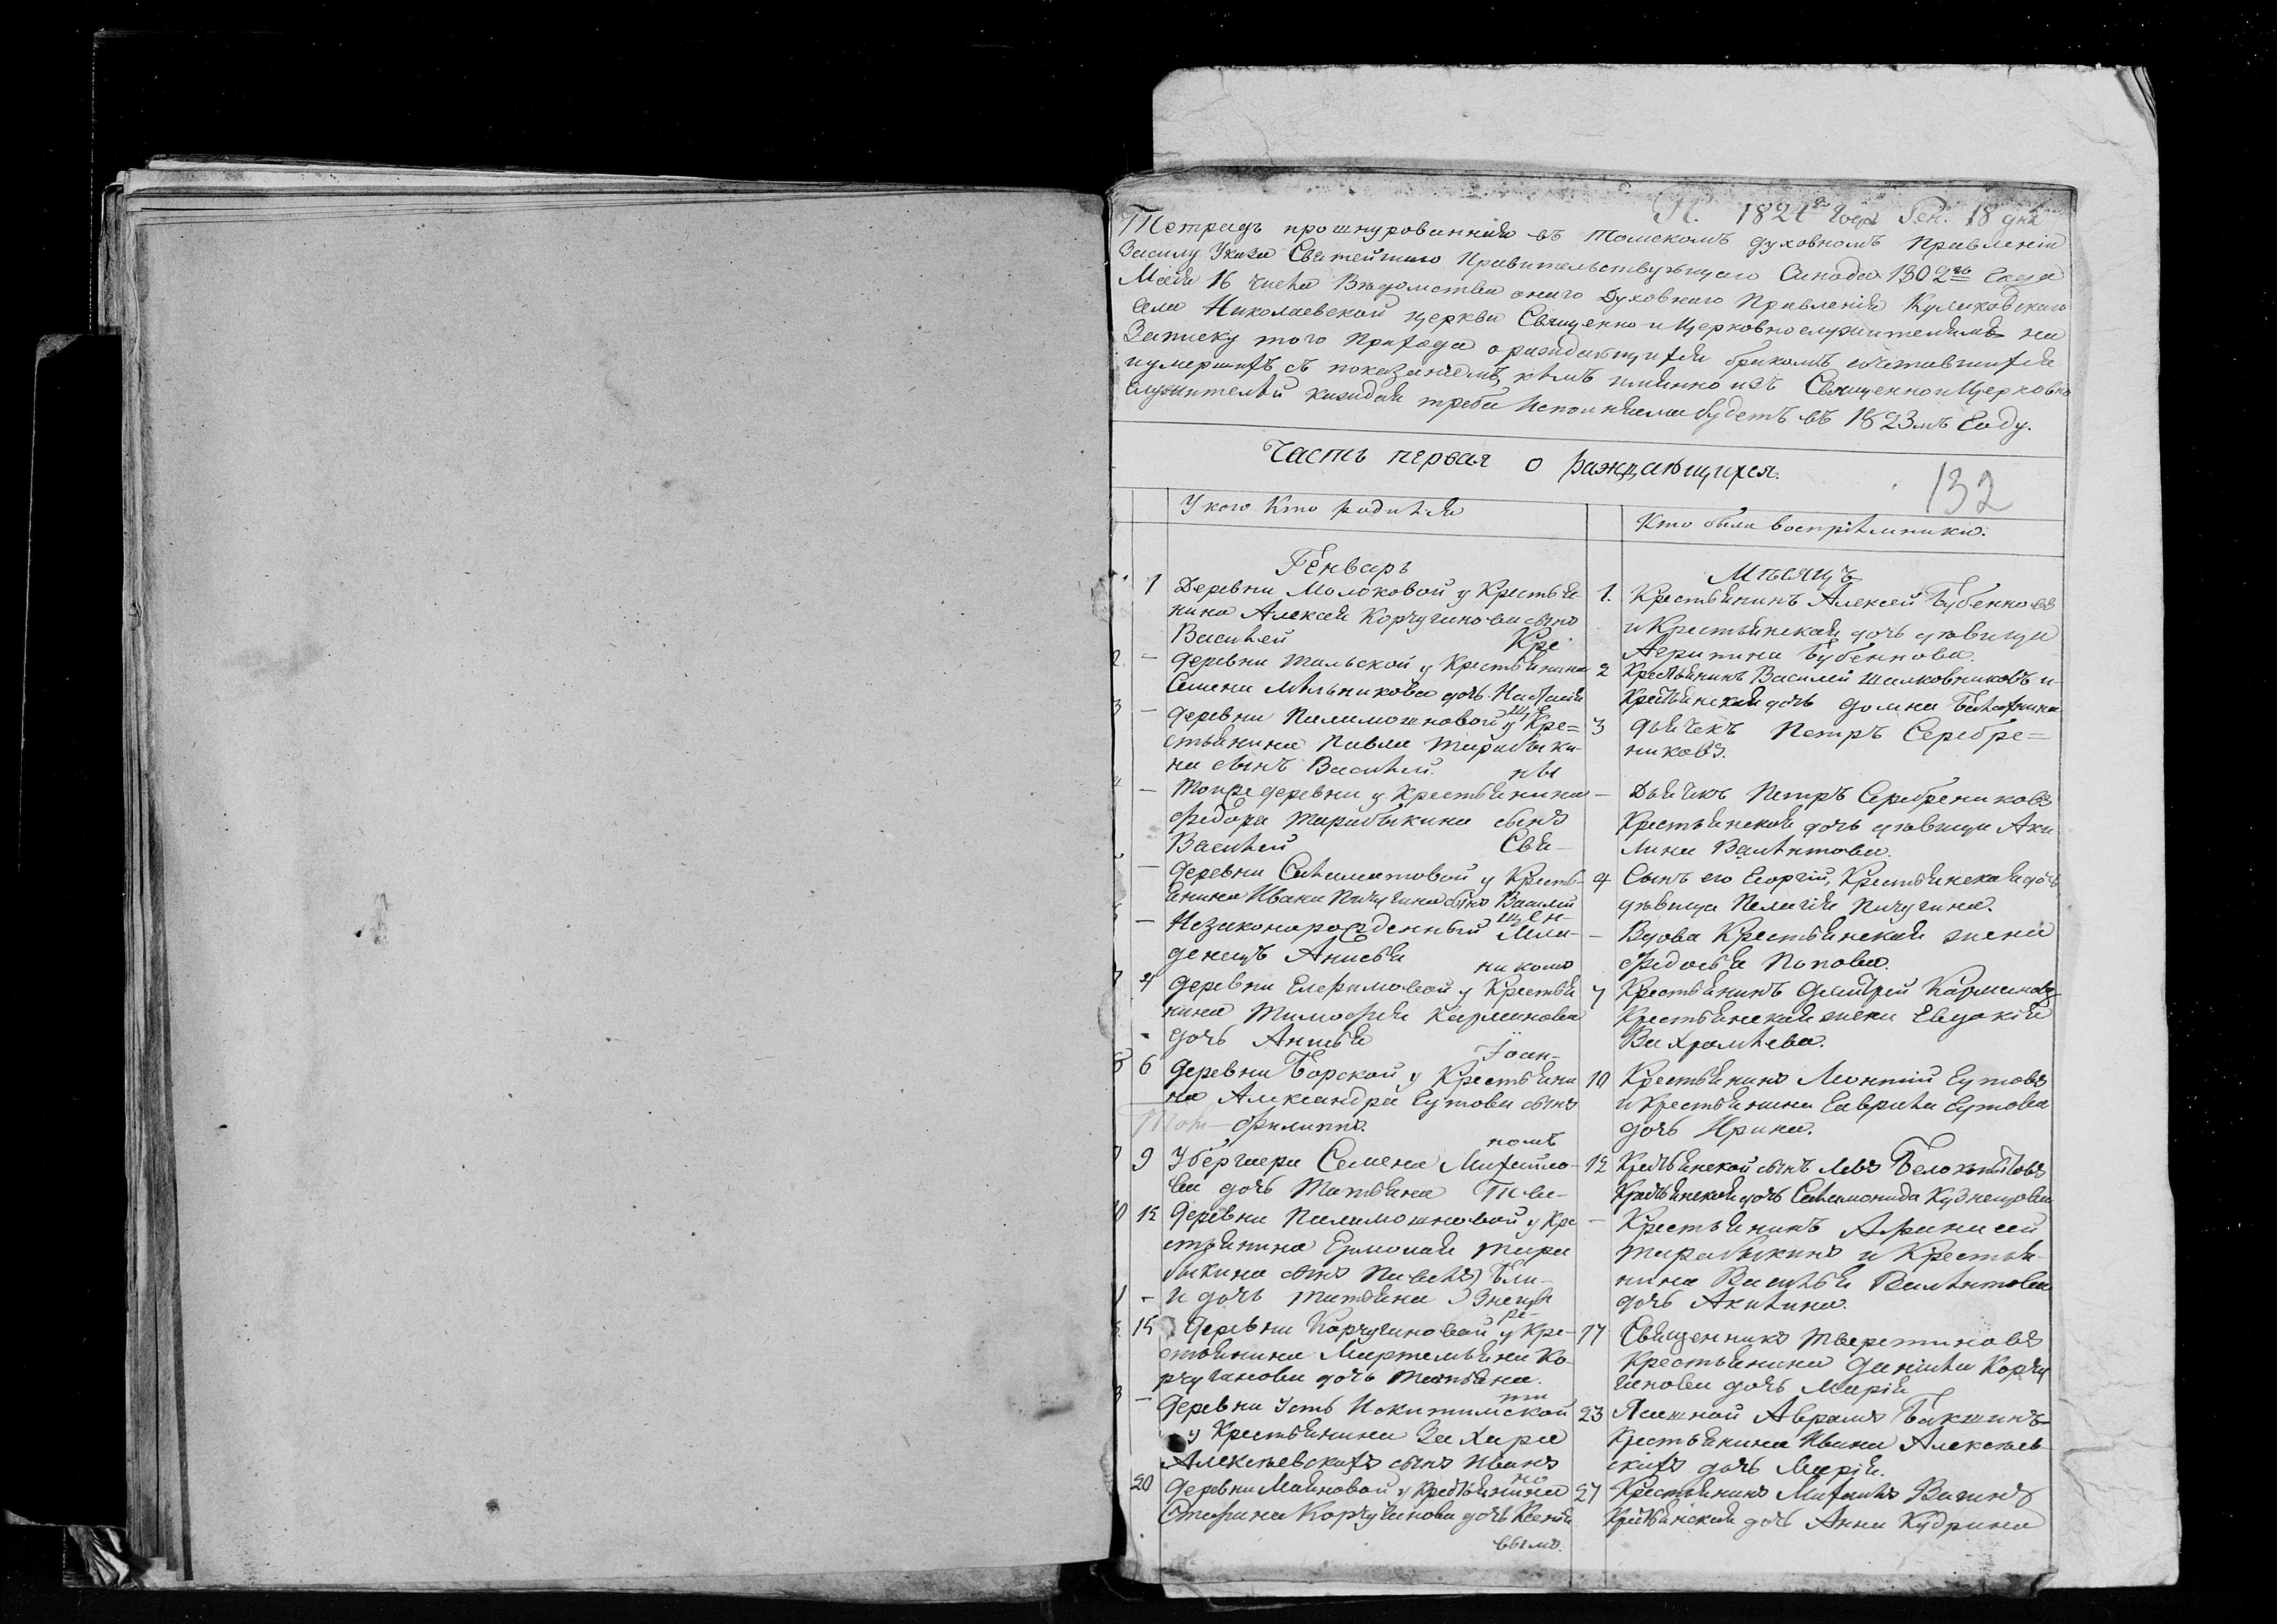 П. 1824 года Ген. 18 дня
Тетрадь прошнурованная въ Томскомъ духовномъ Правленіи
Всилу Указа Святейшаго Правительствующаго Синода 1802го Года
Маія 16 числа Вѣдомства онаго Духовнаго Правленія Куликовскаго
села Николаевской церкви Священно и Церковнослужителямъ на
Записку того Прихода о раждающихся бракомъ сочетавшихся
и умершихъ съ показаніемъ, кѣмъ имянно изъ Священно и Церковно
служителей каждая треба исполняема будетъ въ 1823мъ Году.
Часть первая о раждающихся.
132
У кого Кто родился
Кто были воспріемники.
Генварь
Мѣсяцъ
1 Деревни Молоковой у Крестья
нина Алексея Корчуганова сынъ
Василей Кре
1. Крестьянинъ Алексей Бубенновъ
и Крестьянская дочь дѣвица
Агрипина Бубеннова.
2 — деревни Тальской у Крестьянина
Семена Мельникова дочь Настасья
ще
2 Крестьянинъ Василей Шалковниковъ и
Крестьянская дочь Домна
3 — деревни Паламошновой у Кре=
стьянина Павла Тарабыки-
на сынъ Василей. ны
3 дьячекъ Петръ Серебре=
никовъ.
— Тояже деревни у Крестьянина
Федора Тарабыкина сынъ
Василей Свя-
— Дьячекъ Петръ Серебрениковъ
Крестьянская дочь девица Аку
лина Валентова.
— деревни у Кресть-
янина Ивана Пичугина сынъ Василей
щен-
4 Сынъ его Георгій, Крестьянская дочь
дѣвица Пелагія Пичугина.
— Незаконорожденный Мла-
денецъ Анисья
никомъ
— Вдова Крестьянская жена
Федосья Попова.
7 4 деревни Елефимовой у Крестья
нина Тимофея Карманова
дочь Анисья Іоан-
7 Крестьянинъ Дмитрей Кармановъ
Крестьянская жена Евдокія
Вахромеева.
8 6 деревни Борской у Крестьяни
на Александра Сутова сынъ
Филиппъ.
помъ
10 Крестьянинъ Леонтій Сутовъ
и Крестьянина Гаврила Сутова
дочь Ирина.
9 У бергаера Семена Михайло-
ва дочь Татьяна Тве-
12 Крестьянской сынъ Левъ Белокопытовъ
Крестьянская дочь Соломонида Кузнецова
12 деревни Паламошновой у Кре
стьянина Ермолая Тара
быкина сынъ Павелъ) Бли-
— и дочь Татьяна ) знецы
ре-
— Крестьянинъ Афанасей
Тарабыкинъ и Крестья-
нина Василья Валентова
дочь Акилина.
15 деревни Корчугановой у Кре-
стьянина Мартемьяна Ко-
рчуганова дочь Татьяна.
ти
17 Священникъ Тверетиновъ
Крестьянина Данила Корчу
ганова дочь Марія
— деревни Усть Искитимской
у Крестьянина Захара
Алексеевскихъ сынъ Иванъ
но
23 Ясашной Аврамъ Бакшинъ
Крестьянина Ивана Алексеев-
скихъ дочь Марія.
20 деревни Малиновой у Крестьянина
Стефана Корчуганова дочь Ксенія
вымъ.
27 Крестьянинъ Михаилъ Вагинъ
Крестьянская дочь Анна Кудрина